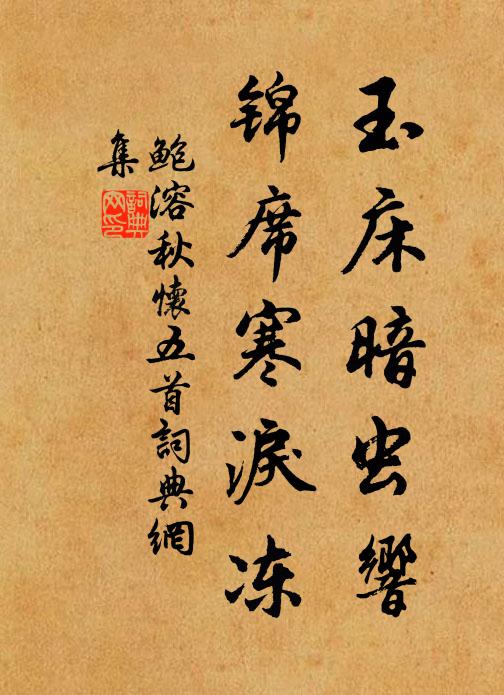 玉床暗虫響
锦席寒淚冻
鲍溶秋懷五首詞典網
集
詞典
网印